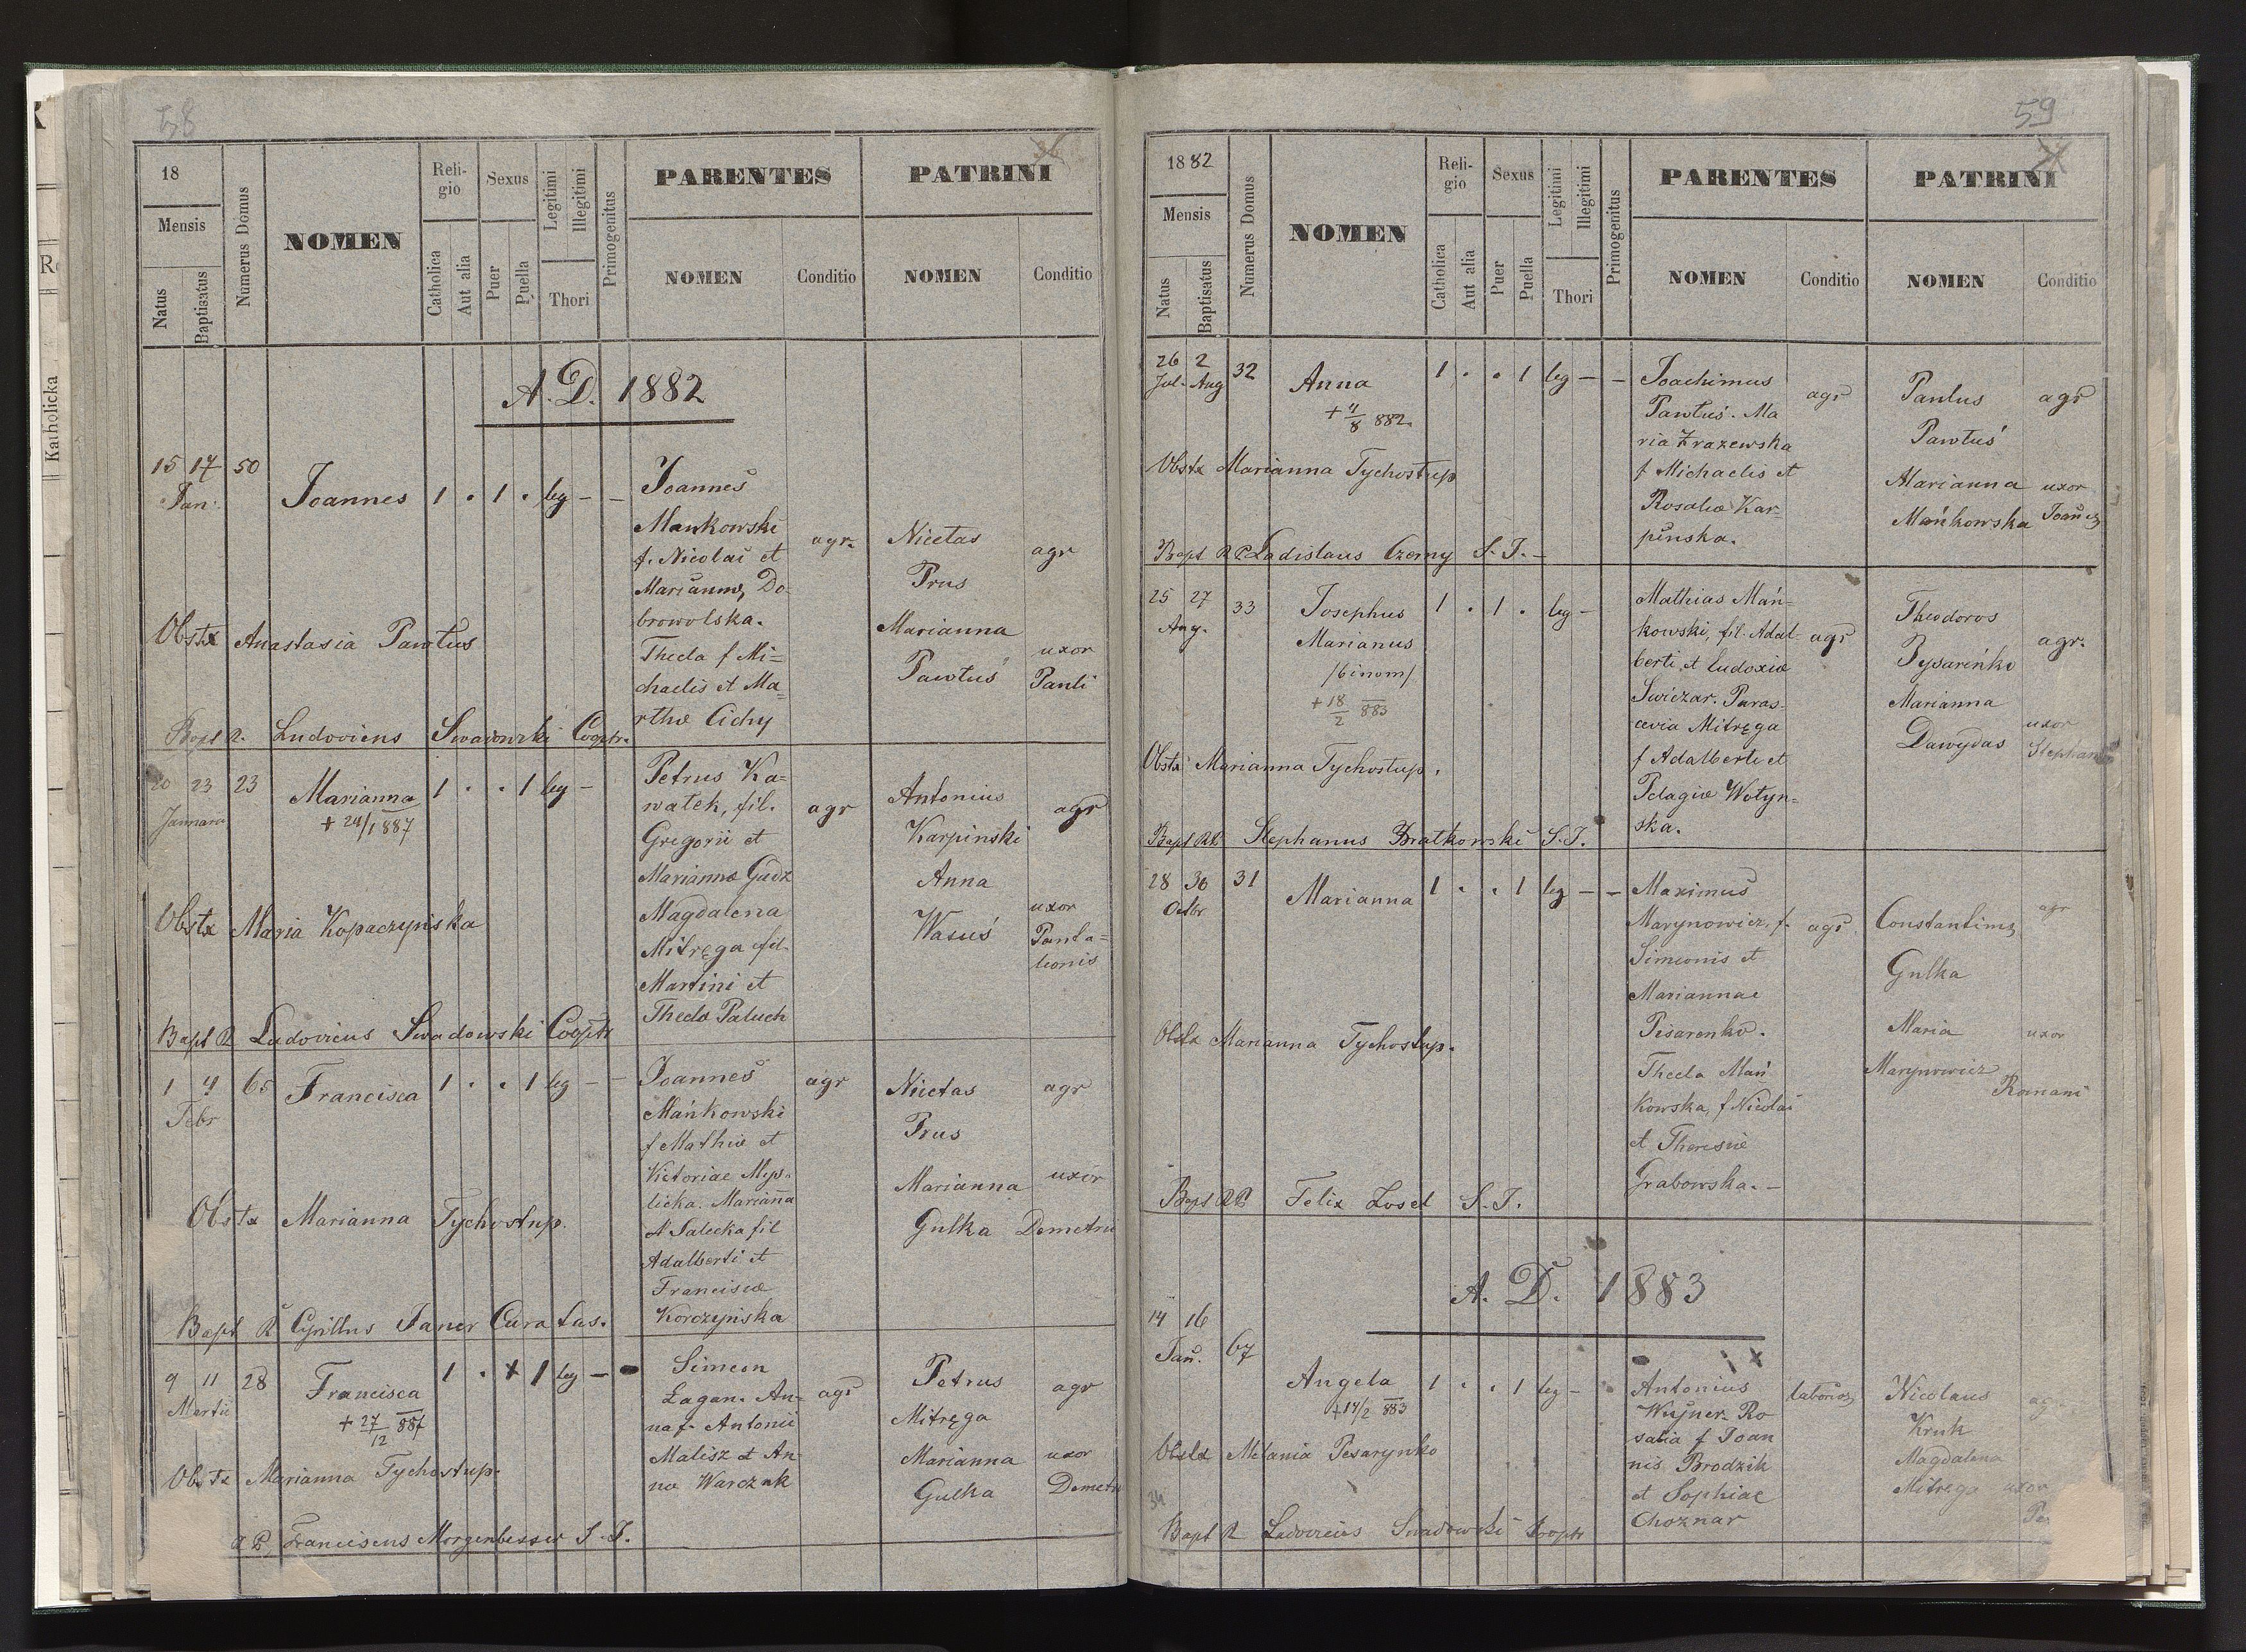 58
18
Mensis
Natus
Baptisatus
Numerus Domus
NOMEN
Reli-
gio
Catholica
Aut alia
Sexus
Puer
Puella
Legitimi
Illegitimi
Thori
Primogenitus
PARENTES
NOMEN
Conditio
PATRINI
NOMEN
Conditio
A. D. 1882
15 17 50
Jan.
Joannes 1 . 1 . leg - -
Joannes
Mankowski
f. Nicolai et
Mariannę Do-
browolska.
Thecla f Mi=
chaelis et Ma=
rthæ Cichy
agr.
Nicetas
Prus
agr
Marianna
Pawtuś
uxor
Pauli
Obstx Anastasia Pawtus
Bapt R. Ludovicus Swadowski Cooptr.
20 23 23
Januarii
Marianna 1 . . 1 leg -
+ 24/1 887
Petrus Ka=
watek, fil.
Gregorii et
Mariannæ Gudz
Magdalena
Mitręga fil
Martini et
Theclæ Paluch
agr
Antonius
Karpinski
agr
Anna
Wasuś
uxor
Panta=
leonis
Obstx Maria Kopaczyńska
Bapt R Ludovicus Swadowski Cooptr
1 4 65
Febr
Francisca 1 . . 1 leg - -
Joannes
Mańkowski
f Mathiæ et
Victoriae Mys-
licka. Marianna
Salecka fil
Adalberti et
Franciscæ
Korczyńska
agr
Nicetas
Prus
agr
Marianna
Gulka
uxor
Demetrii
Obstx Marianna Tychostup.
Bapt R Cyrillus Janer Curatus.
9 11 28
Martii
Francisca 1 . x 1 leg -
+ 27/12 887
Simeon
Łagan. An-
na f. Antonii
Malisz et An-
na Warczuk
agr
Petrus
Mitręga
agr
Marianna
Gulka
uxor
Demetrii
Obstx Marianna Tychostup.
R P. Franciscus Morgenbesser S. J.
59
1882
Mensis
Natus
Baptisatus
Numerus Domus
NOMEN
Reli-
gio
Catholica
Aut alia
Sexus
Puer
Puella
Legitimi
Illegitimi
Thori
Primogenitus
PARENTES
NOMEN
Conditio
PATRINI
NOMEN
Conditio
26 2 32
Jul. Aug
Anna 1 . . 1 leg - -
+ 4/8 882.
Joachimus
Pawtuś. Ma
ria Zrazewska
f Michaelis et
Rosaliæ Kar-
pinska.
agr
Paulus
Pawtuś
agr
Marianna
Mańkowska
uxor
Joannis
Obstx Marianna Tychostup
Bapt R P Ladislaus Czerny S. J. -
25 27 33
Aug.
Josephus 1 . 1 . leg -
Marianus
/binom/
+ 18/2 883
Mathias Mań=
kowski, fil. Adal-
berti, et Eudoxiæ
Swiczar. Paras-
cevia Mitręga
f Adalberti et
Pelagiæ Wotyn=
ska.
agr
Theodoros
Pysareńko
agr.
Marianna
Dawydas
uxor
Stephani
Obstx Marianna Tychostup.
Bapt R P. Stephanus Bratkowski S. J.
28 30 31
Octbr
Marianna 1 . . 1 leg - -
Maximus
Marynowicz, f.
Simeonis et
Mariannae
Pisarenko.
Thecla Mań
kowska, f Nicolai
et Theresiæ
Grabowska. -
agr
Constantinus
Gulka
agr
Maria
Marynowicz
uxor
Romani
Obstx Marianna Tychostup.
Bapt R P. Felix Zosel S. J.
A. D. 1883
14 16
Jan. 67
Angela 1 . . 1 leg -
+ 14/2 883
Antonius
Wajner. Ro
salia f Joan
nis Brodzik
et Sophiae
Choznar
laborios
Nicolaus
Kruk
Magdalena
Mitręga uxor
Obstx Melania Pesarynko
34
Bapt R Ludovicus Swadowski Cooptr
Katholicka